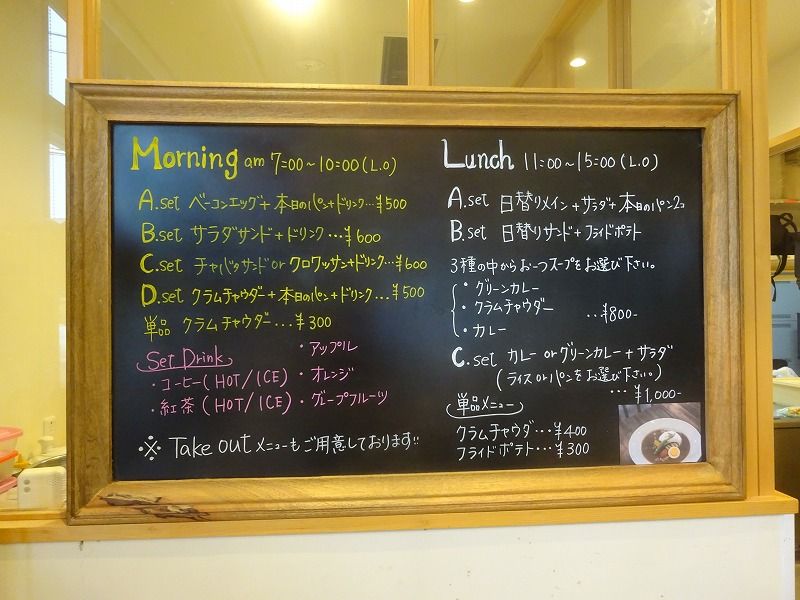 Morning am 7:00～10:00(L.O)
A.set ベーコンエッグ+本日のパン+ドリンク…¥500
B.set サラダサンド+ドリンク…¥600
C.set チャバタサンドorクロワッサン+ドリンク…¥600
D.set クラムチャウダー+本日のパン+ドリンク…¥500
単品 クラムチャウダー…¥300
Set Drink
・コーヒー(HOT/ICE)
・紅茶(HOT/ICE)
・アップル
・オレンジ
・グレープフルーツ
※ Take outメニューもご用意しております!!
Lunch 11:00～15:00(L.O)
A.set 日替りメイン+サラダ+本日のパン2コ
B.set 日替りサンド+フライドポテト
3種の中からお一つスープをお選び下さい。
・グリーンカレー
・クラムチャウダー
・カレー
…¥800-
C.set カレーorグリーンカレー+サラダ
(ライスorパンをお選び下さい。)
…¥1,000-
単品メニュー
クラムチャウダ…¥400
フライドポテト…¥300